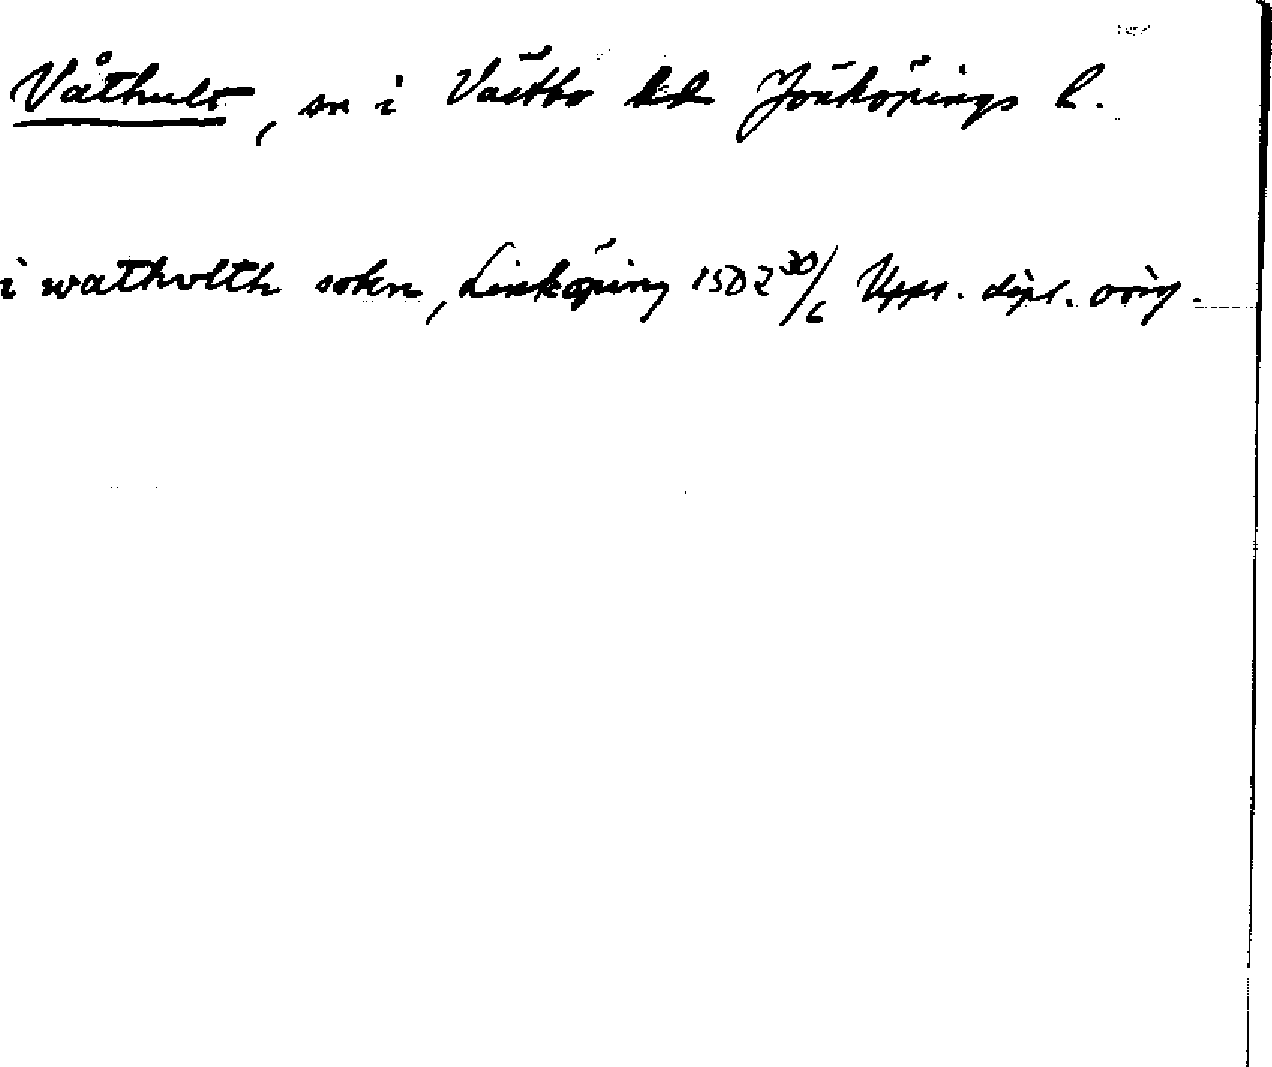 Våthult, sn i Västbo hd Jönköpings l.
i watholth sokn, Linköping 1502 30/6 Upps. dipl. orig.